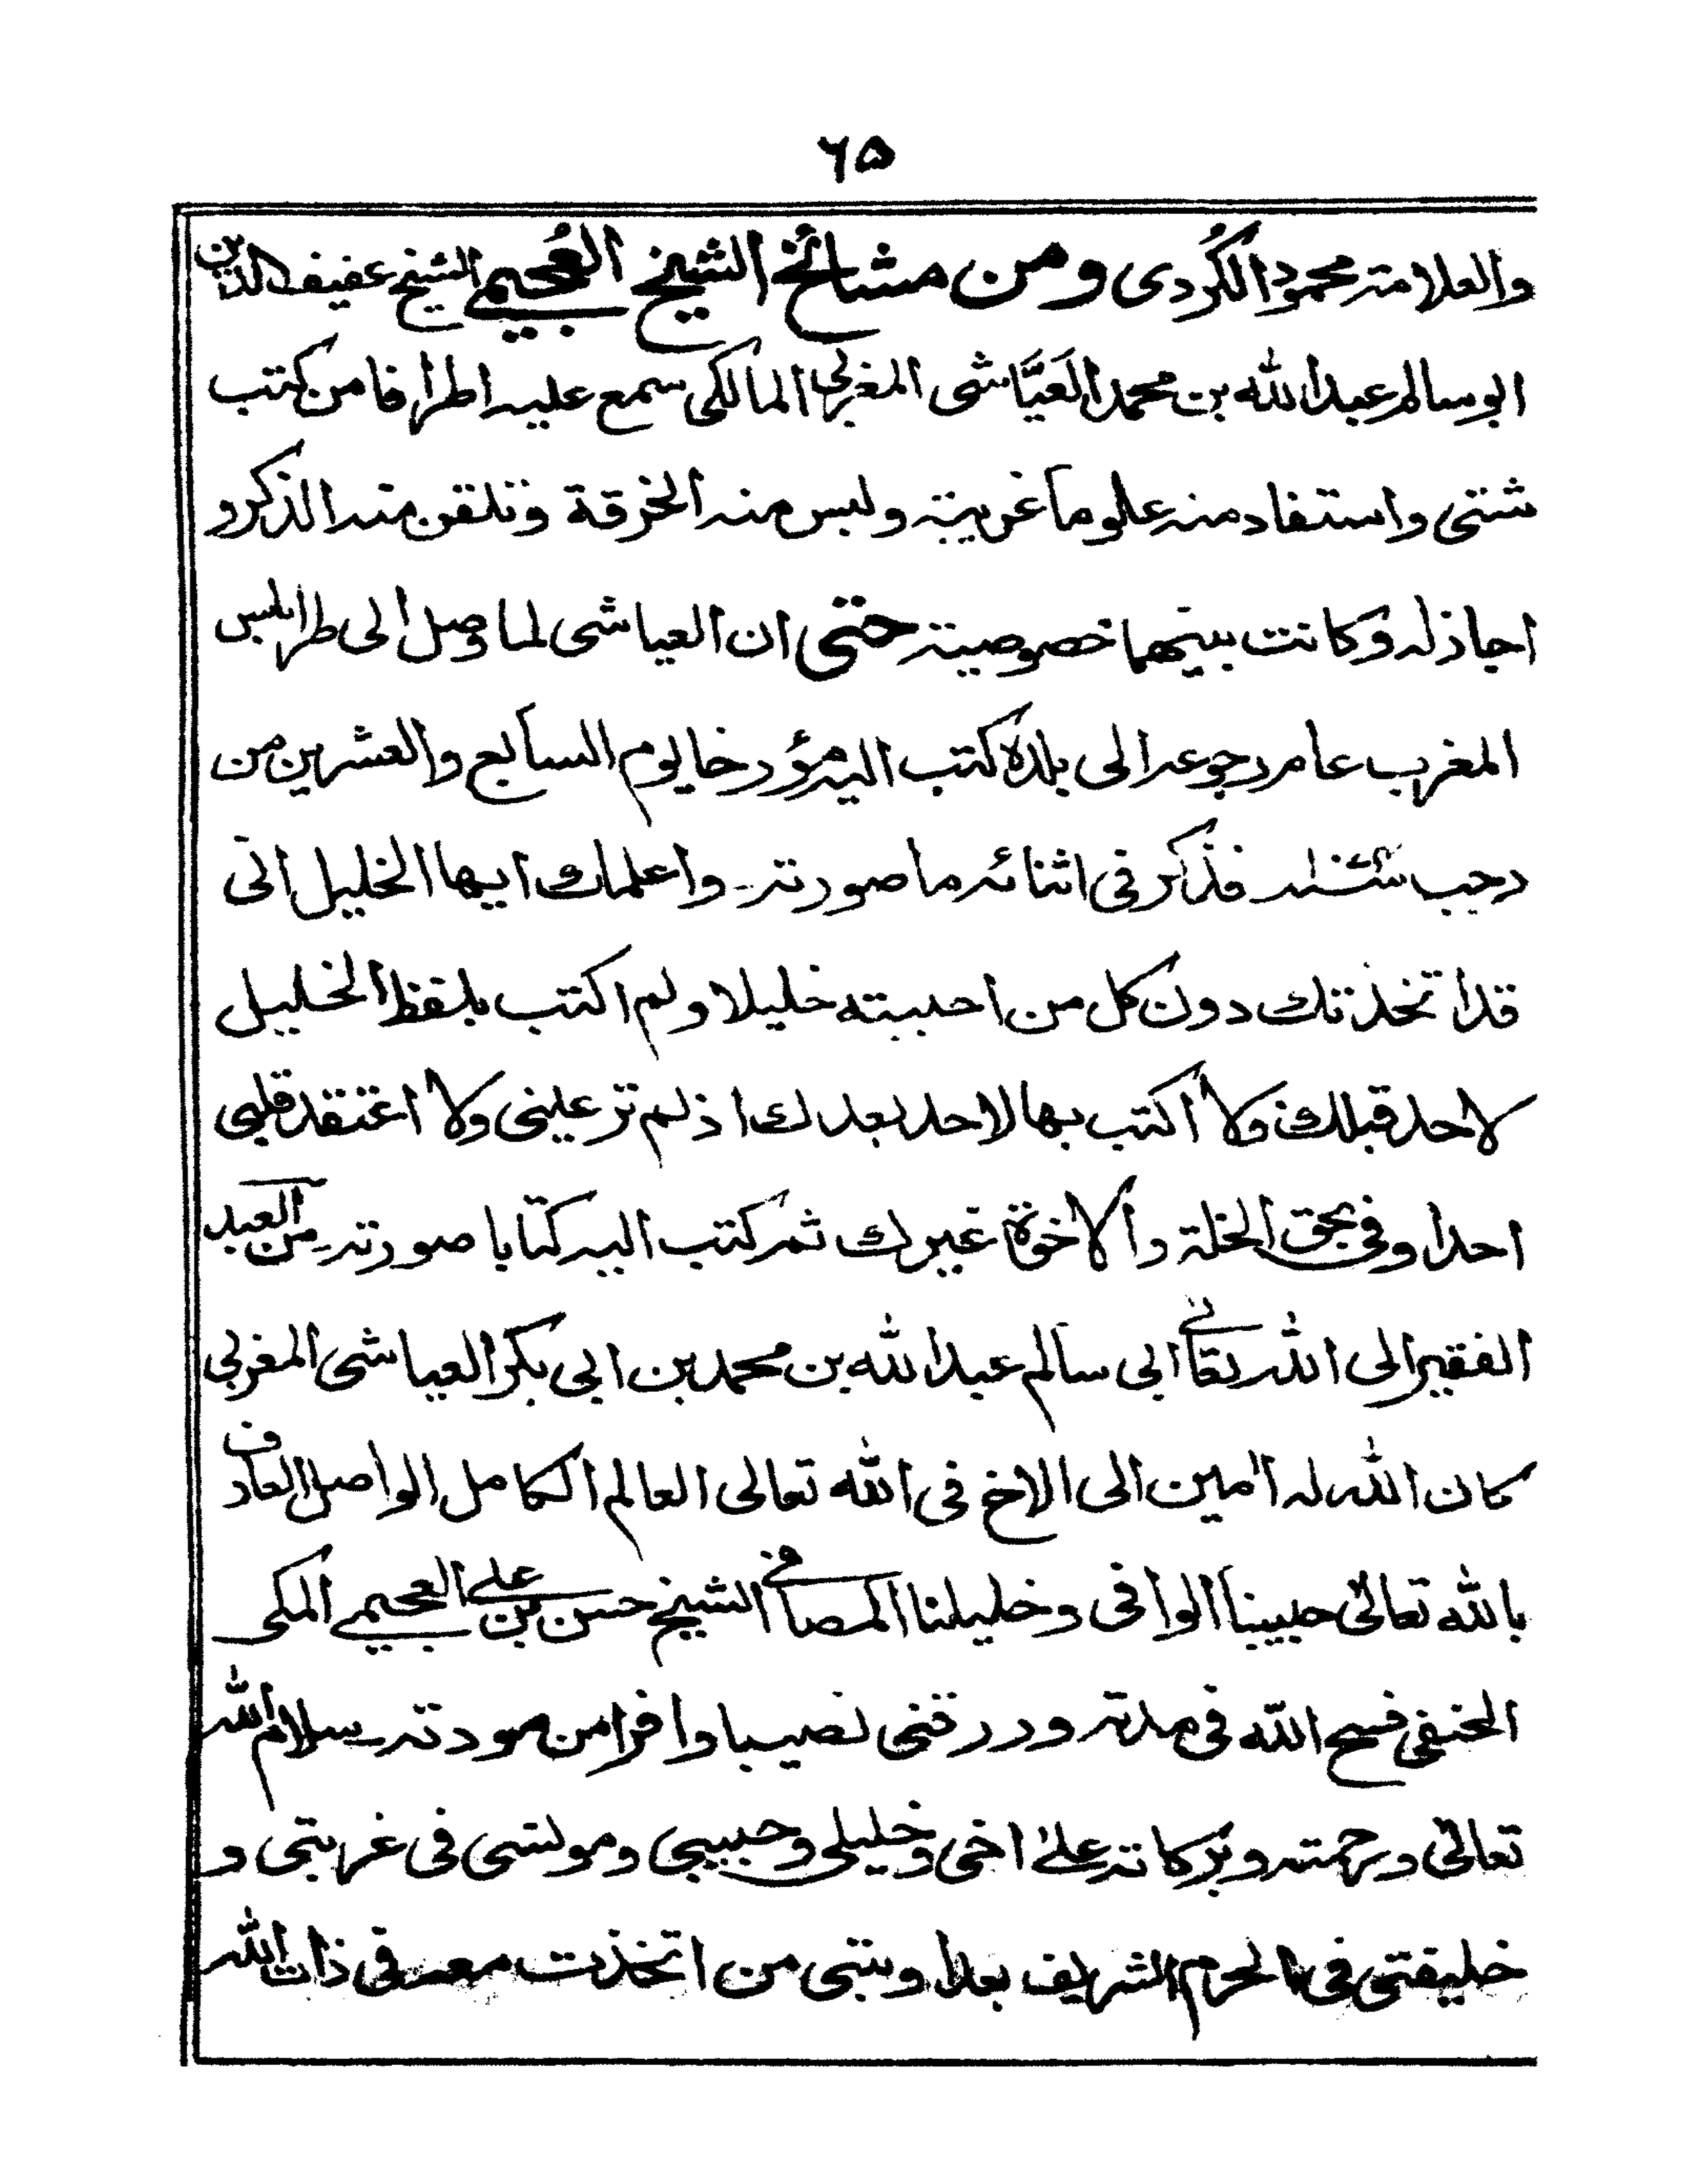 ٦٥
والعلامة محمود الكُردى ومن مشائخ الشيخ العُجيمي الشيخ عفيف الدين
ابو سالم عبد الله بن محمد العَيَّاشى المغربي المالكى سمع عليه اطرافا من كتب
شتى واستفاد منه علوما غريبة ولبس منه الخرقة وتلقن منه الذكر و
اجاز له وكانت بينهما خصوصية حتى ان العياشى لما وصل الى طرابلس
المغرب عام رجوعه الى بلده كتب اليه مؤرخا يوم السابع والعشرين من
رجب فذكر فى اثنائه ما صورته واعلمك ايها الخليل انى
قد اتخذتك دون كل من احببته خليلا ولم اكتب بلفظ الخليل
لاحد قبلك ولا أكتب بها لاحد بعدك اذ لم تر عينى ولا اعتقد قلبى
احدا وفى بحق الخلة والاخوة غيرك ثم كتب اليه كتابا صورته من العبد
الفقير الى الله تعالى ابى سالم عبد الله بن محمد بن ابى بكر العياشى المغربي
كان الله له امين الى الاخ فى الله تعالى العالم الكامل الواصل العارف
بالله تعالى حبيبنا الوافى وخليلنا المصافى الشيخ حسن بن على العجيمى المكى
الحنفى فسح الله فى مدته ورزقنى نصيبا وافرا من مودته سلام الله
تعالى ورحمته وبركاته على اخى وخليلى وحبيبى ومونسى فى غربتى و
خليفتى فى الحرم الشريف بعد اوبتى من اتخذت معه فى ذات الله